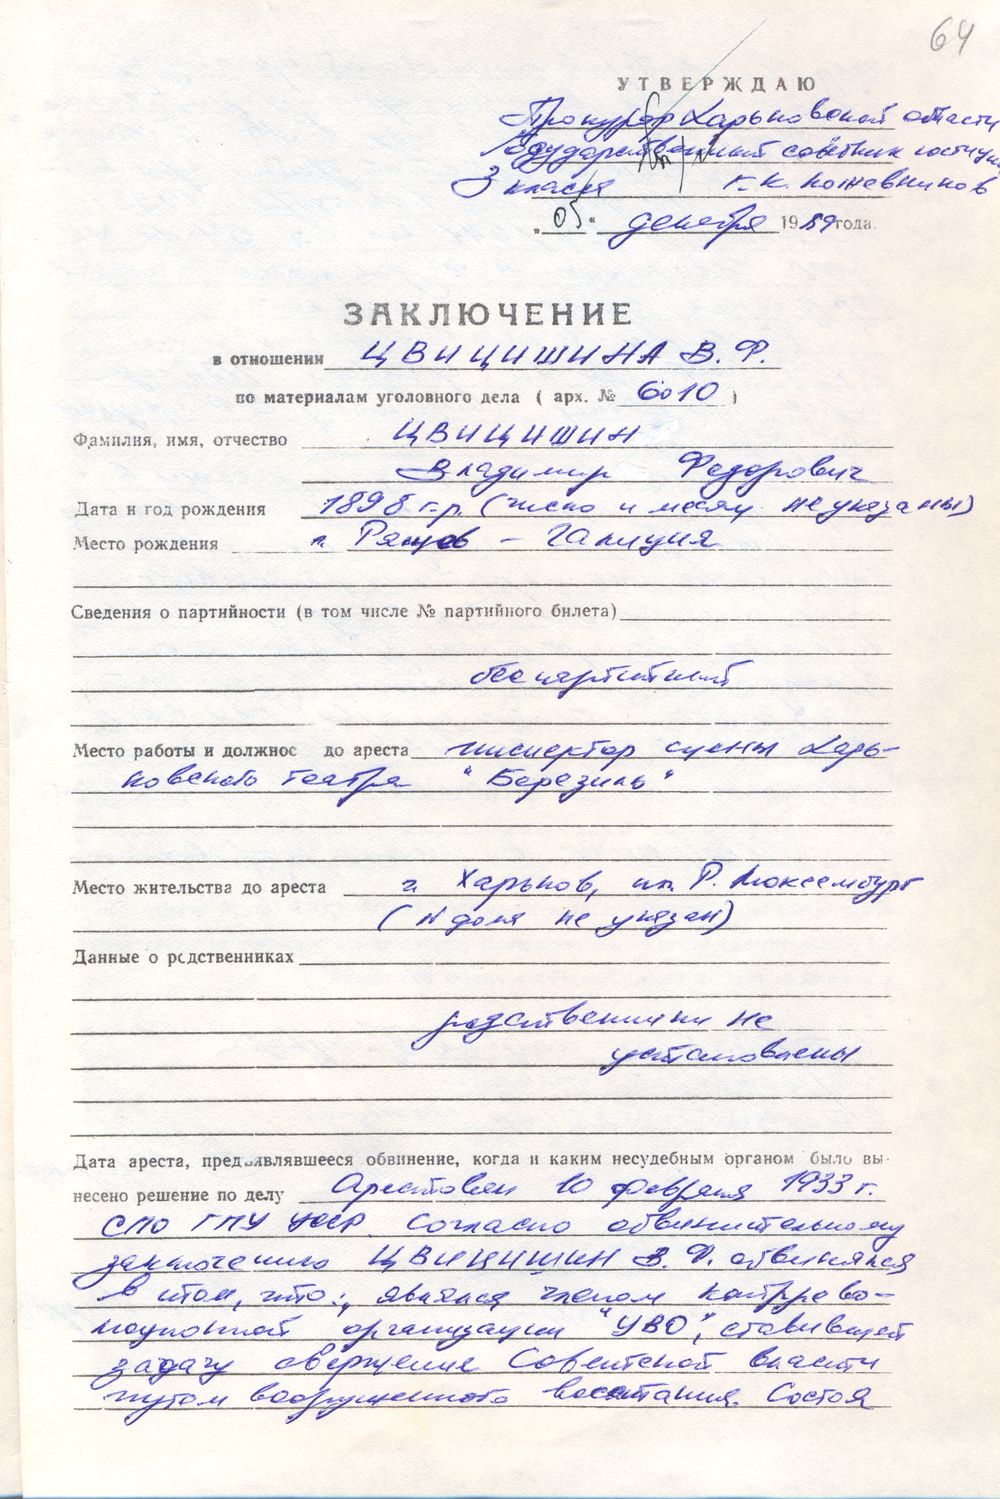 64
УТВЕРЖДАЮ
Прокурор Харьковской области
Государственный советник юстиции
3 класса Г.К. Кожевников
"05" декабря 1989 года.
ЗАКЛЮЧЕНИЕ
в отношении ЦВИЦИШИНА В. Ф.
по материалам уголовного дела ( арх. № 6010 )
Фамилия, имя, отчество ЦВИЦИШИН
Владимир Федорович
Дата и год рождения 1898 г.р. (число и месяц не указаны)
Место рождения г. Ряшев – Галиция
Сведения о партийности (в том числе № партийного билета)
беспартийный
Место работы и должнос до ареста инспектор сцены Харь-
ковского театра "Березиль"
Место жительства до ареста г. Харьков, пл. Р. Люксембург
(№ дома не указан)
Данные о родственниках
родственники не
установлены
Дата ареста, предъявлявшееся обвинение, когда и каким несудебным органом было вы-
несено решение по делу Арестован 10 февраля 1933 г.
СПО ГПУ УССР. Согласно обвинительному
заключению ЦВИЦИШИН В. Ф. обвинялся
в том, что:, являлся членом контррево-
люционной организации "УВО", ставившей
задачу свержение Советской власти
путем вооруженного восстания. Состоя